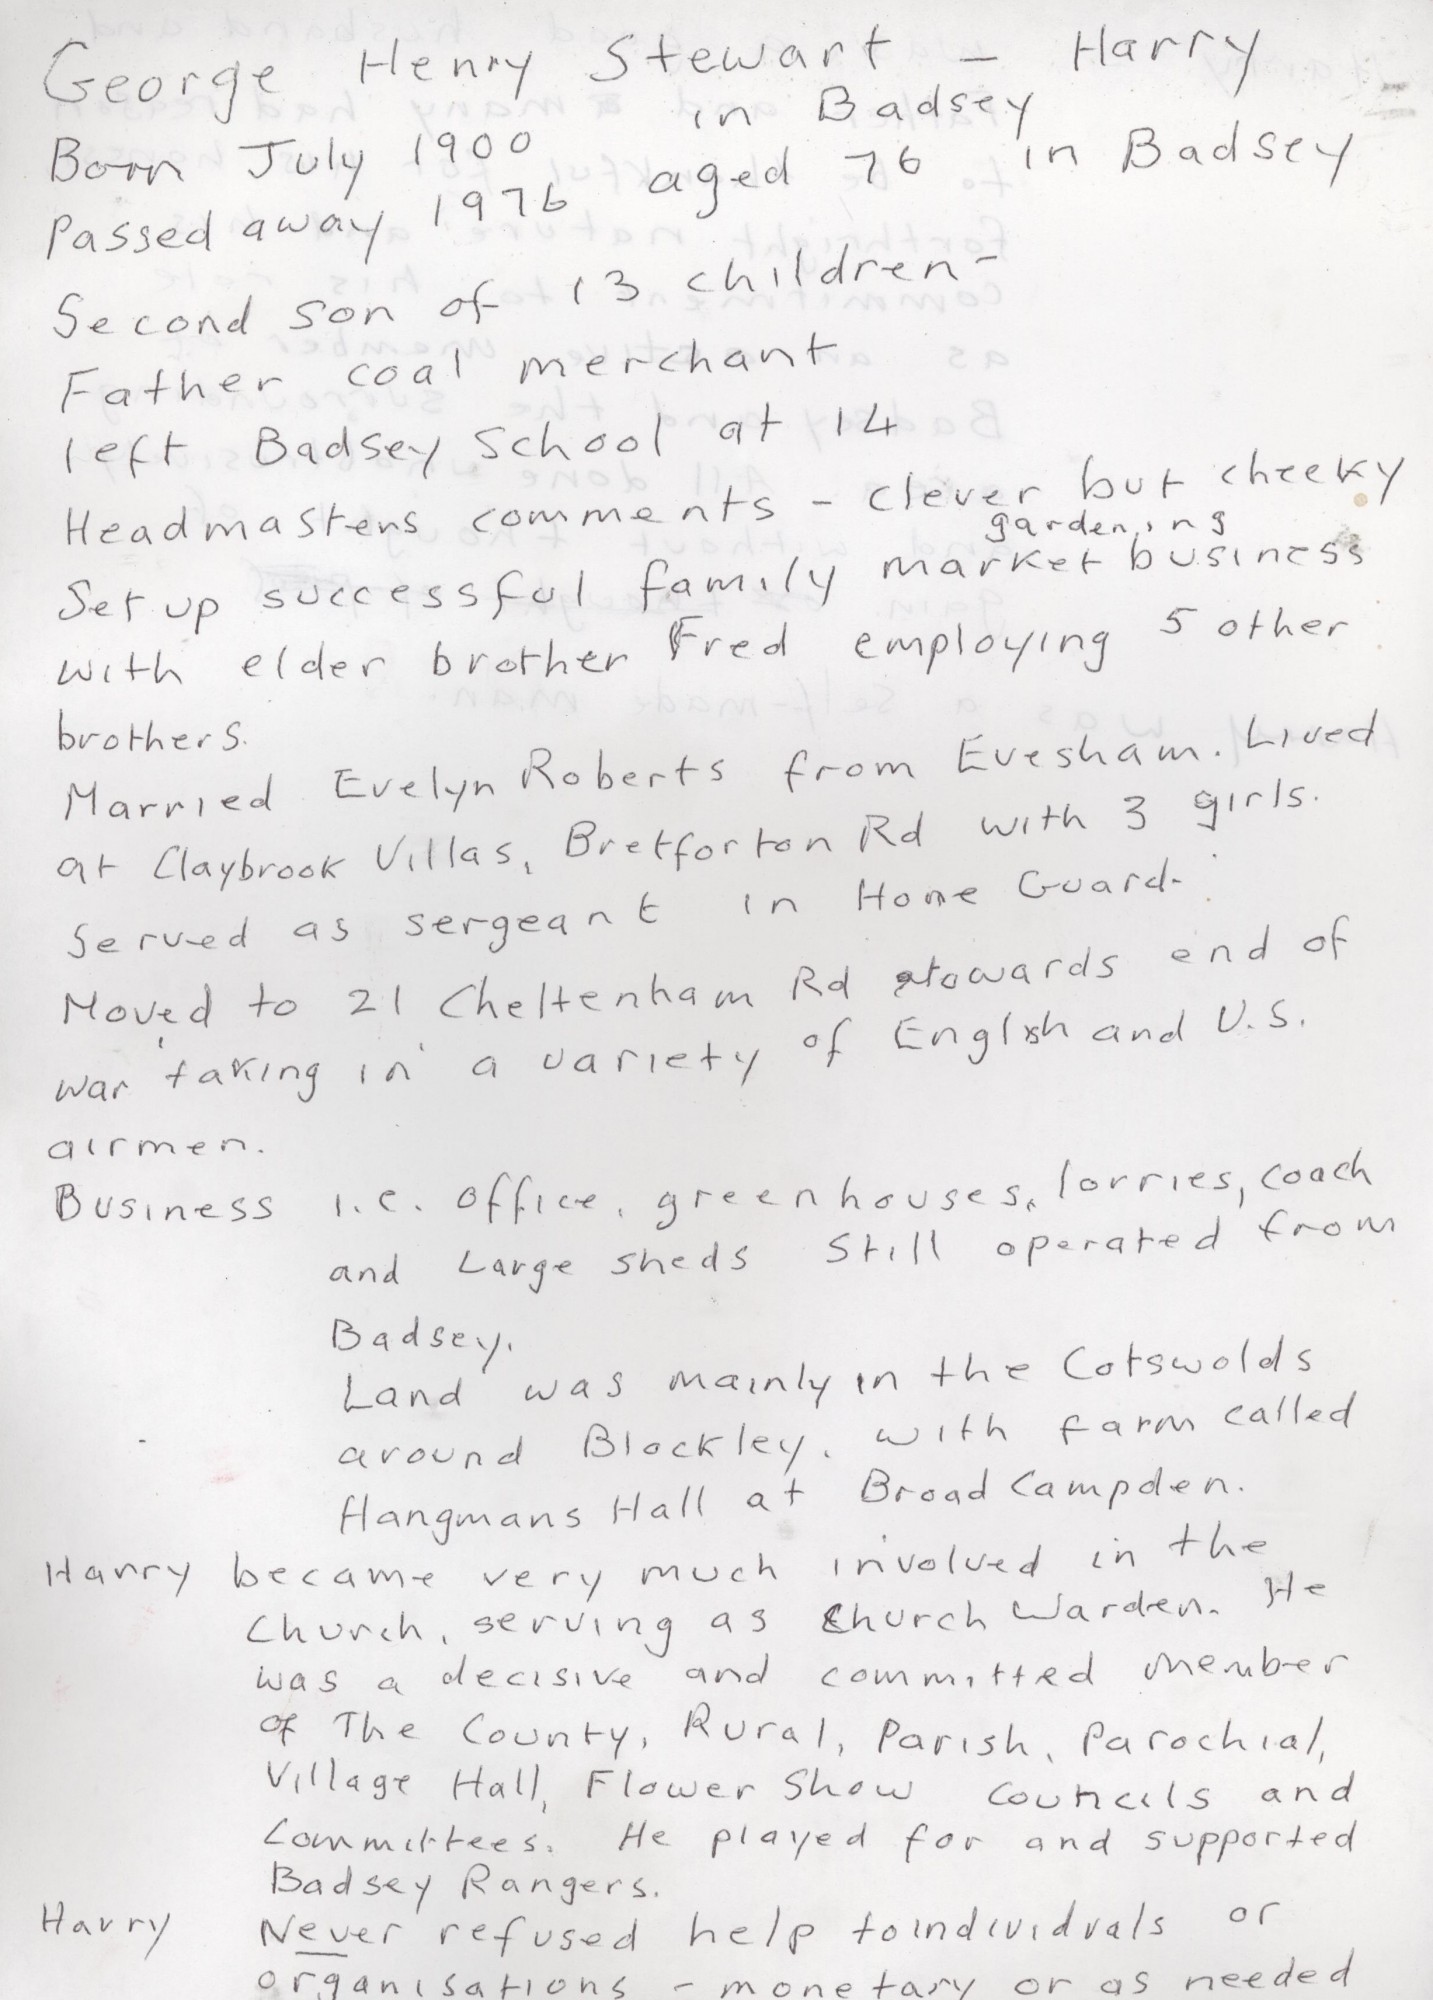 George Henry Stewart – Harry
Born July 1900 in Badsey
Passed away 1976 aged 76 in Badsey
Second son of 13 children –
Father coal merchant
left Badsey School at 14
Headmasters comments – clever but cheeky
Set up successful family market gardening business
with elder brother Fred employing 5 other
brothers.
Married Evelyn Roberts from Evesham. Lived
at Claybrook Villas, Bretforton Rd with 3 girls.
Served as sergeant in Home Guard.
Moved to 21 Cheltenham Rd towards end of
war 'taking in' a variety of English and U.S.
airmen.
Business i.e. office, greenhouses, lorries, coach
and Large sheds still operated from
Badsey.
Land was mainly in the Cotswolds
around Blockley, with farm called
Hangmans Hall at Broad Campden.
Harry became very much involved in the
Church, serving as Church Warden. He
was a decisive and committed member
of The County, Rural, Parish, Parochial,
Village Hall, Flower Show Councils and
Committees. He played for and supported
Badsey Rangers.
Harry Never refused help to individuals or
organisations – monetary or as needed